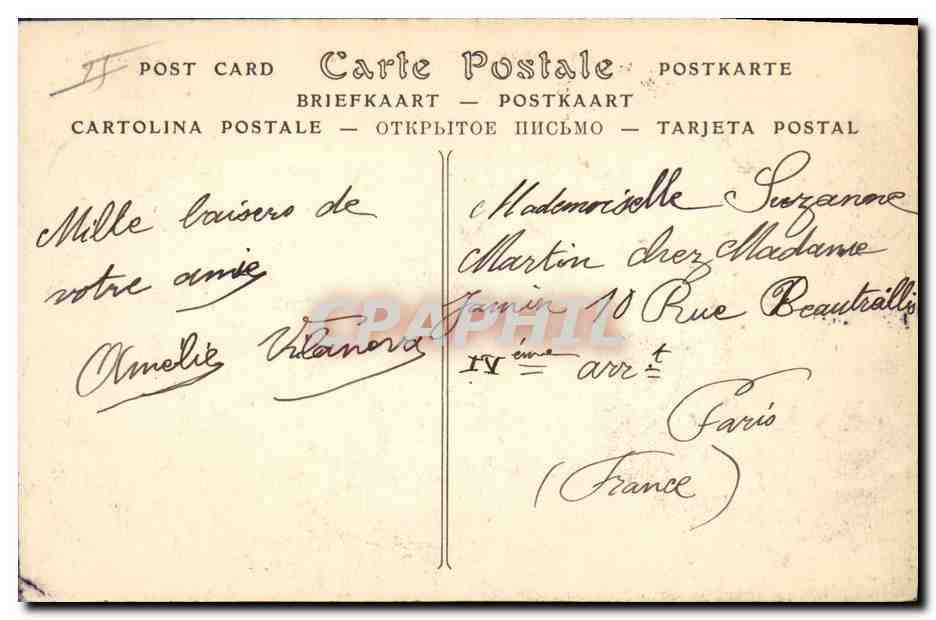 II
POST CARD Carte Postale POSTKARTE
BRIEFKAART — POSTKAART
CARTOLINA POSTALE — ОТКРЫТОЕ ПИСЬМО — TARJETA POSTAL
Mille baisers de
votre amie
Amélie Vilanova
Mademoiselle Suzanne
Martin chez Madame
Jamin 10 Rue Beautrellis
IVème arrt
Paris
(France)
CPAPHIL